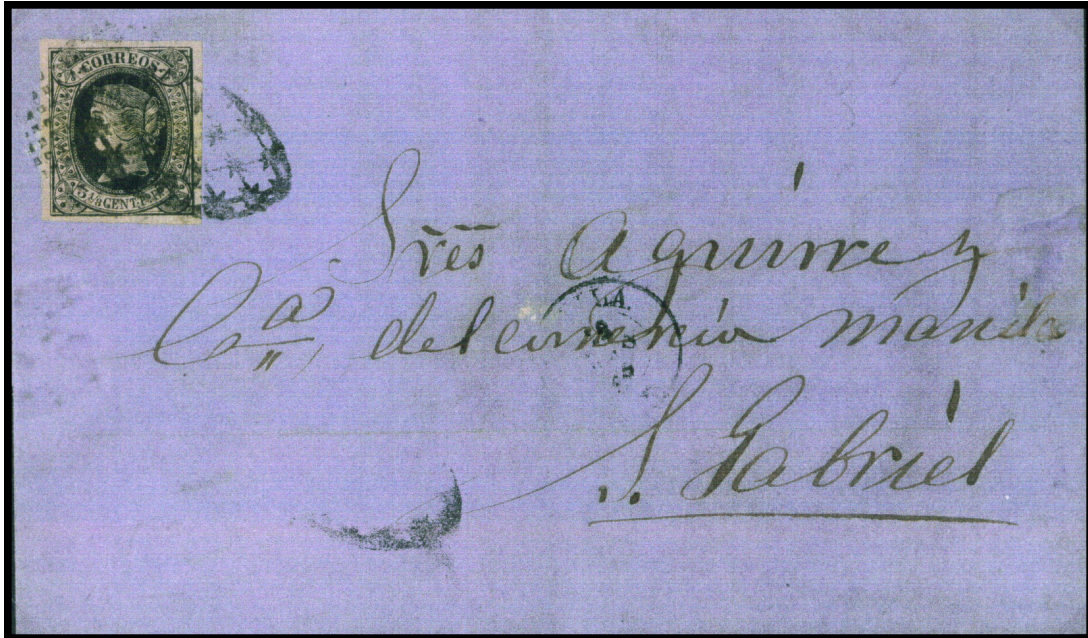 CORREOS
3 1/8 CENT.
Sres Aguirre y
Ca, del comercio manila
S. Gabriel